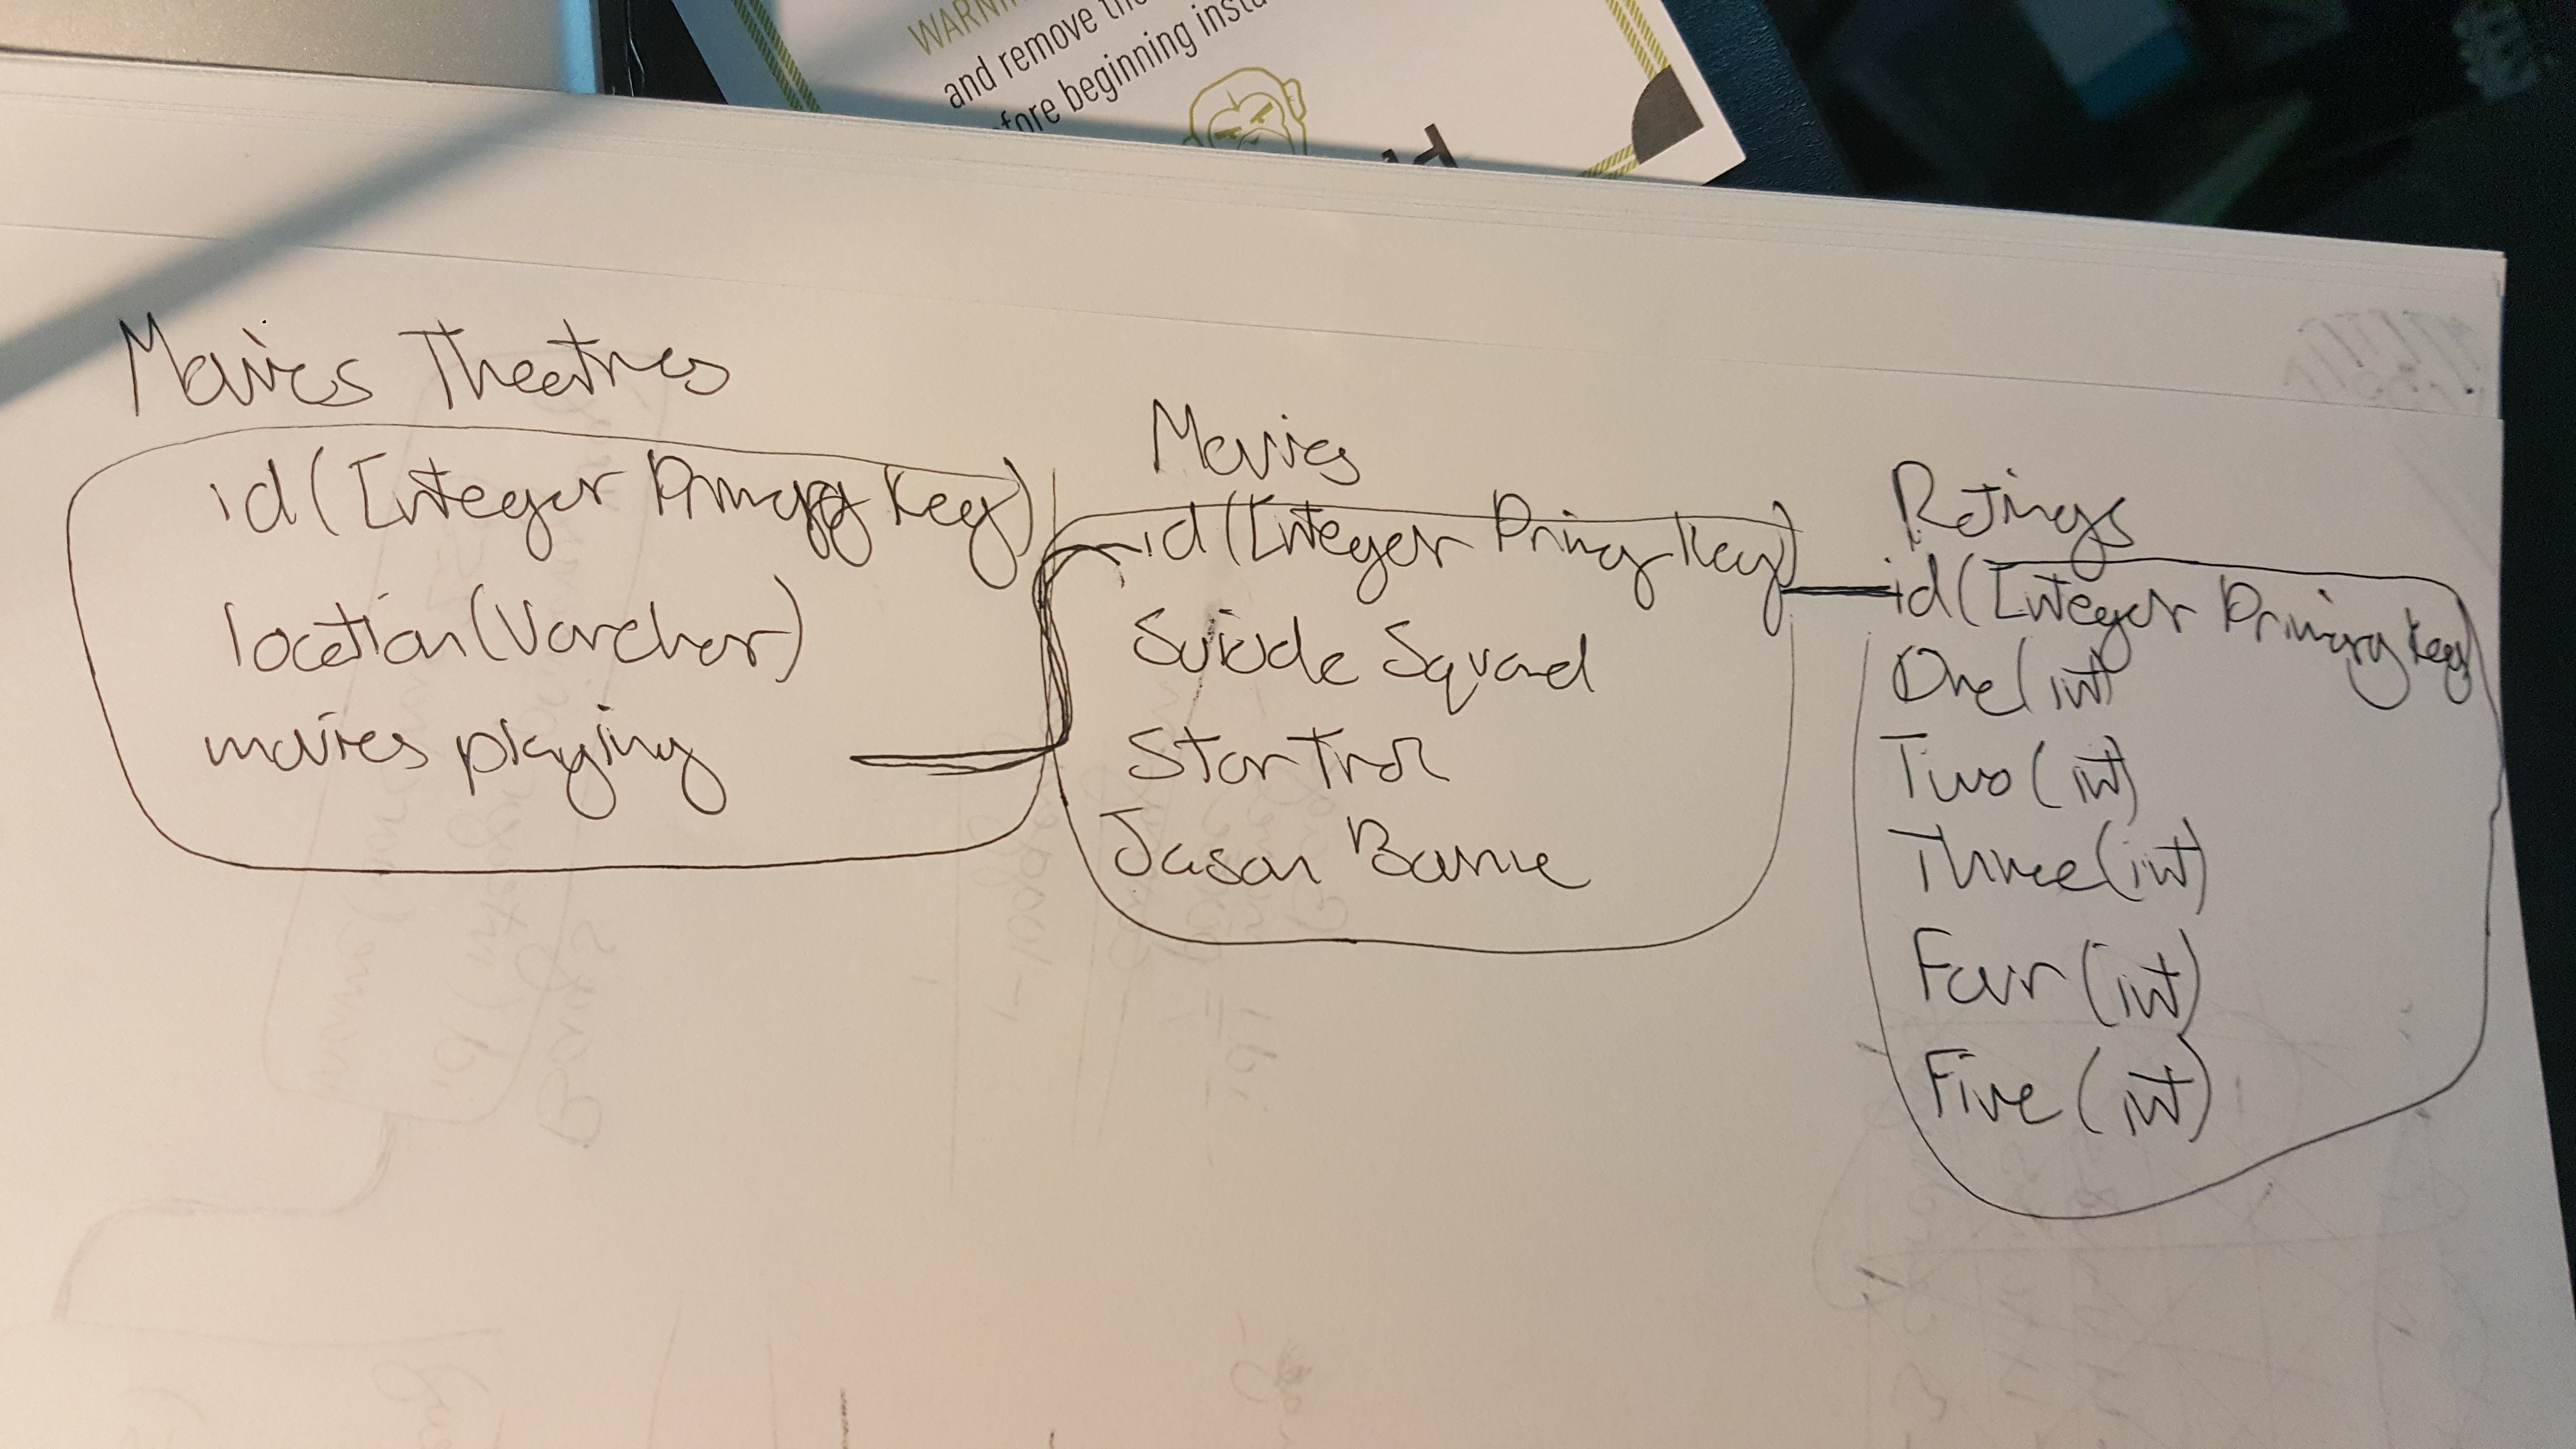 Movies Theatres
id (Integer Primary Key)
location (Varchar)
movies playing
Movies
id (Integer Primary Key)
Suicide Squad
Star Trek
Jason Bourne
Ratings
id (Integer Primary Key)
One (int)
Two (int)
Three (int)
Four (int)
Five (int)
WARN
and remove the
fore beginning insta